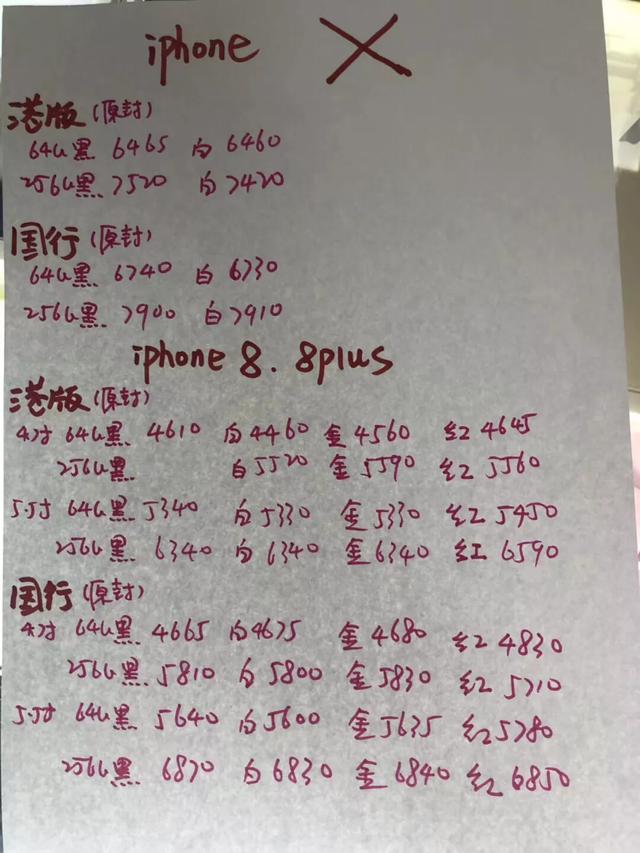 iphone X
港版(原封)
64G黑 6465 白6460
256G黑 7520 白7420
国行(原封)
64G黑 6740 白6730
256G黑 7900 白7910
iphone 8. 8plus
港版(原封)
4寸 64G黑 4610 白4460 金4560 红4645
256G黑 白5520 金5590 红5560
5.5寸 64G黑 5340 白5330 金5330 红5450
256G黑 6340 白6340 金6340 红6590
国行(原封)
4寸 64G黑 4665 白4675 金4680 红4830
256G黑 5810 白5800 金5830 红5710
5.5寸 64G黑 5640 白5600 金5635 红5780
256G黑 6870 白6830 金6840 红6850